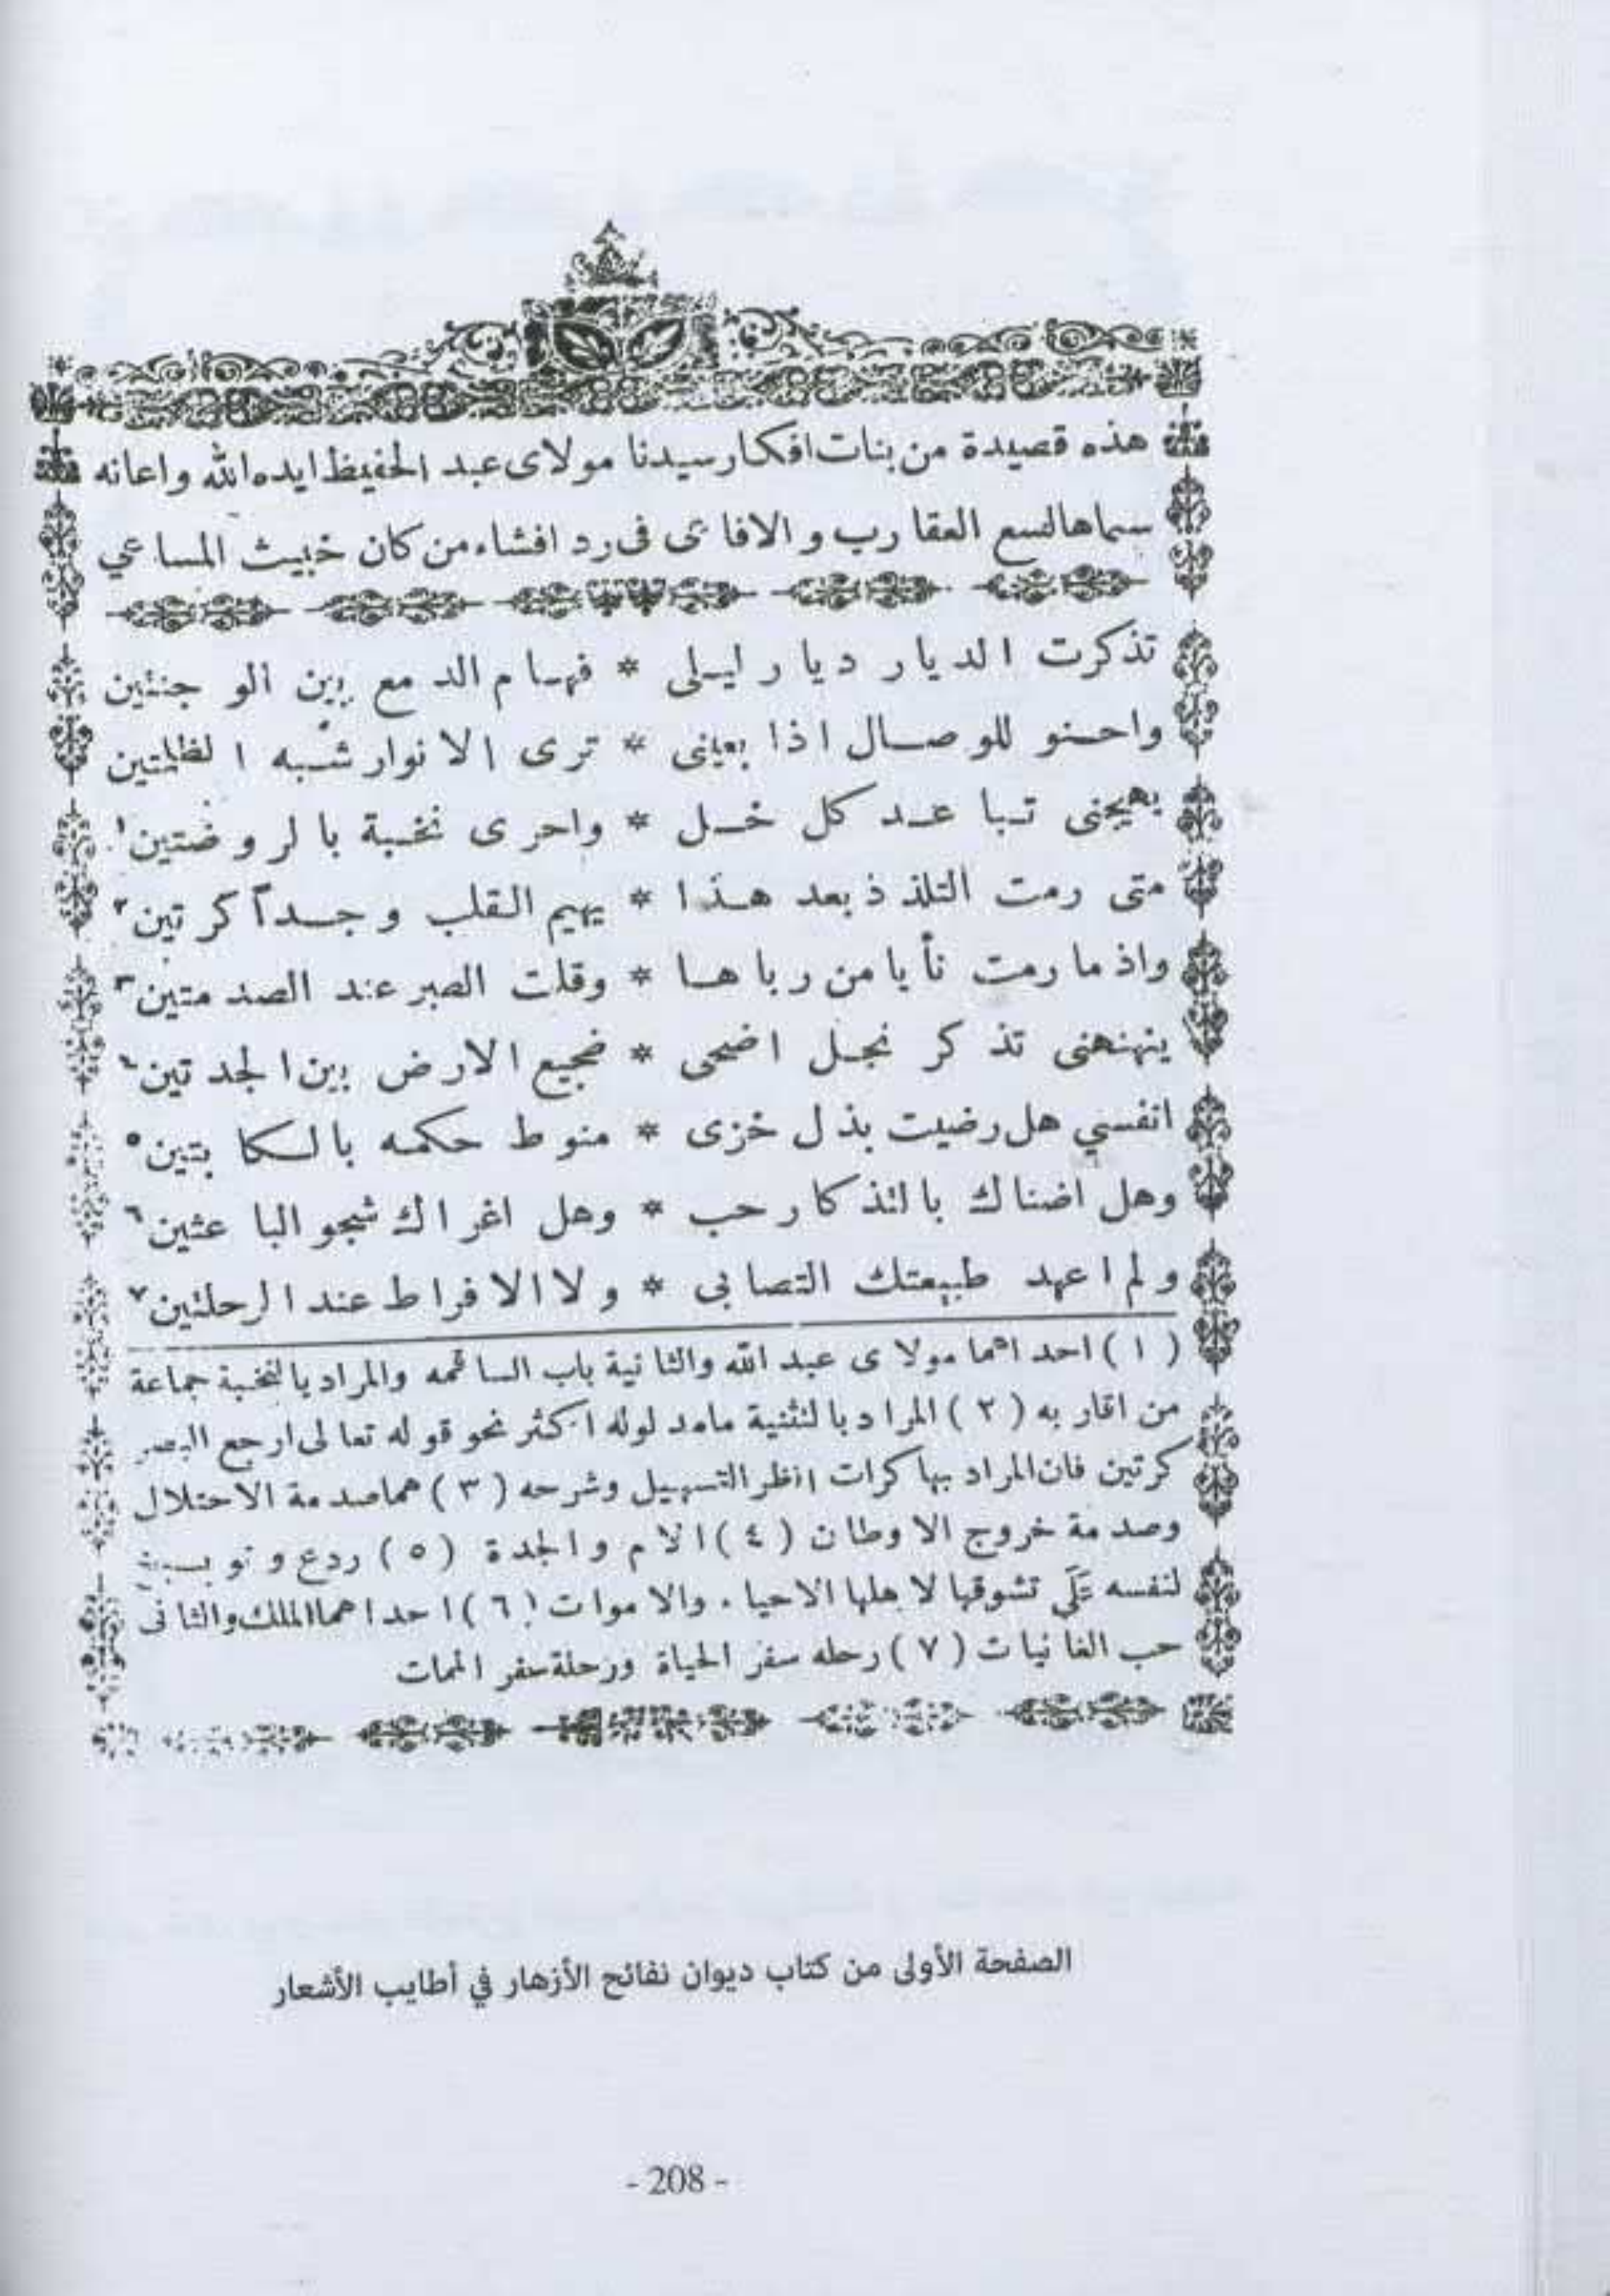 هذه قصيدة من بنات افكار سيدنا مولاى عبد الحفيظ ايده الله واعانه
سماها لسع العقارب والافاعى فى رد افشاء من كان خبيث المساعي
تذكرت الديار ديار ليلى * فهام الدمع بين الوجنتين
واحنو للوصال اذا بعينى * ترى الانوار شبه الظلمتين
يهيجنى تباعد كل خل * واحرى نخبة بالروضتين ١
متى رمت التلذذ بعد هذا * يهيم القلب وجداً كرتين ٢
واذ ما رمت نأيا من رباها * وقلت الصبر عند الصدمتين ٣
ينهنهنى تذكر نجل اضحى * ضجيع الارض بين الجدتين ٤
انفسي هل رضيت بذل خزى * منوط حكمه بالكابتين ٥
وهل اضناك بالتذكار حب * وهل اغراك شجو الباعثين ٦
ولم اعهد طبيعتك التصابى * ولا الافراط عند الرحلتين ٧
( ١ ) احداهما مولاى عبد الله والثانية باب السا قمه والمراد بالنخبة جماعة
من اقاربه ( ٢ ) المراد بالتثنية ما مدلوله اكثر نحو قوله تعالى ارجع البصر
كرتين فان المراد بها كرات انظر التسهيل وشرحه ( ٣ ) هما صدمة الاحتلال
وصدمة خروج الاوطان ( ٤ ) الام والجدة ( ٥ ) ردع وتوبيـ
لنفسه عَلَى تشوقها لاهلها الاحياء والاموات ( ٦ ) احداهما الملك والثانى
حب الغانيات ( ٧ ) رحله سفر الحياة ورحلة سفر الممات
الصفحة الأولى من كتاب ديوان نفائح الأزهار في أطايب الأشعار
- 208 -